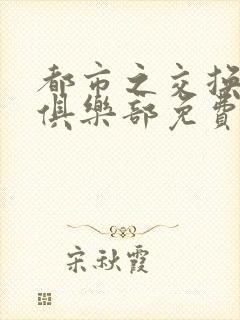 都市之交換
俱樂部免費
宋秋霞